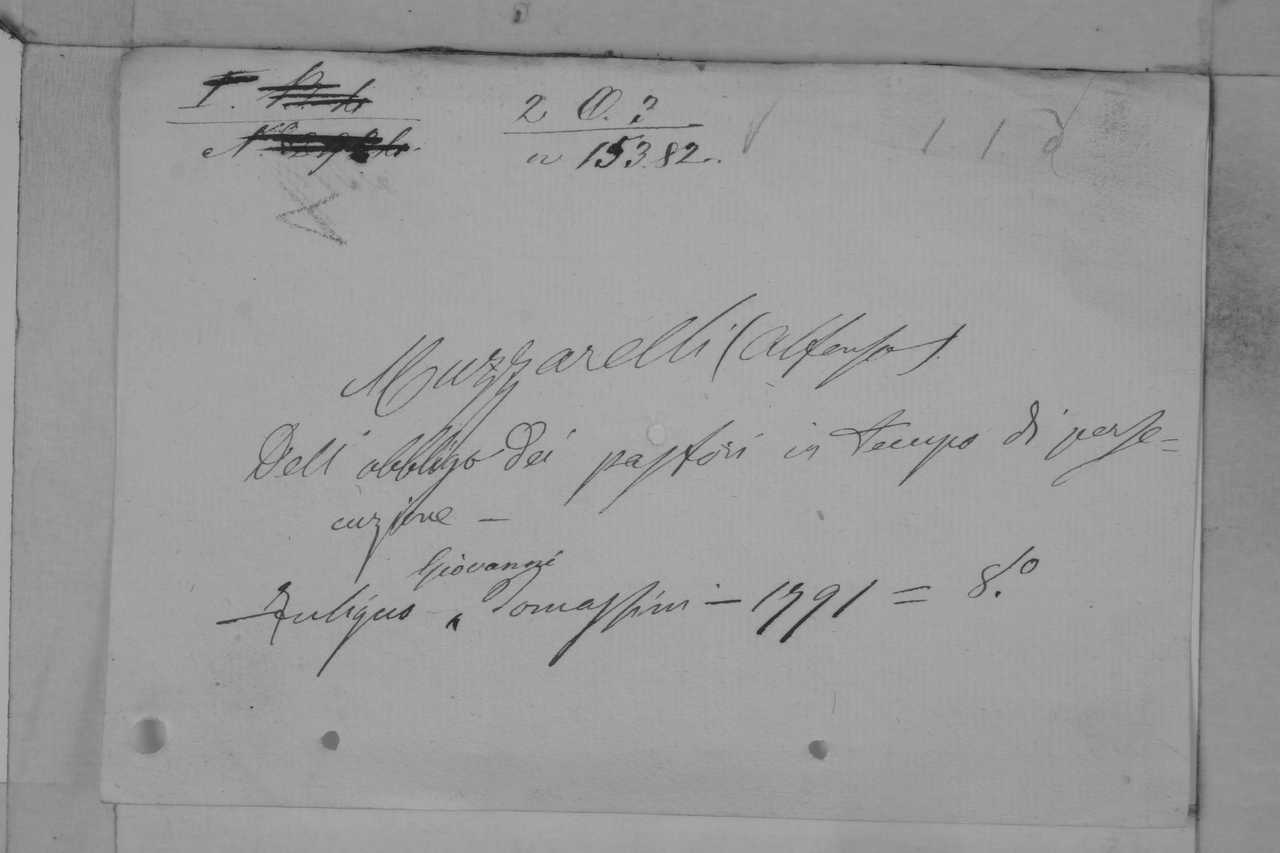 2 O. 3
n 15382.
Muzzarelli (Alfonso)
Dell' obbligo dei pastori in tempo di perse=
cuzione —
Giovanni
— Fuligno — Tomassini — 1791 = 8.º